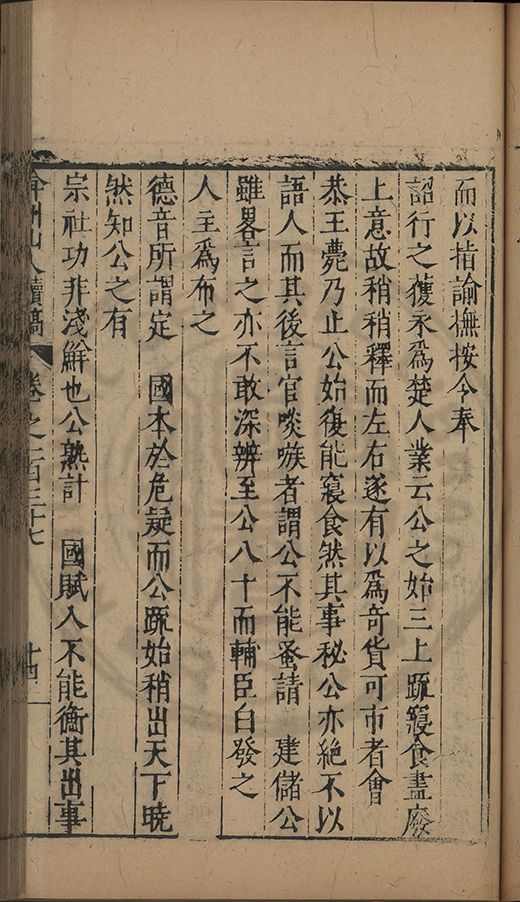 而以指諭撫按今奉
詔行之獲永爲楚人業云公之始三上䟽寢食盡廢
上意故稍稍釋而左右遂有以爲奇貨可市者會
恭王薨乃止公始復能寢食然其事秘公亦絕不以
語人而其後言官啖嗾者謂公不能蚤請 建儲公
雖畧言之亦不敢深辨至公八十而輔臣白發之
人主爲布之
德音所謂定 國本於危疑而公䟽始稍出天下曉
然知公之有
宗社功非淺鮮也公熟計 國賦入不能衡其出事
弇州山人續稿 卷之一百三十七 十四